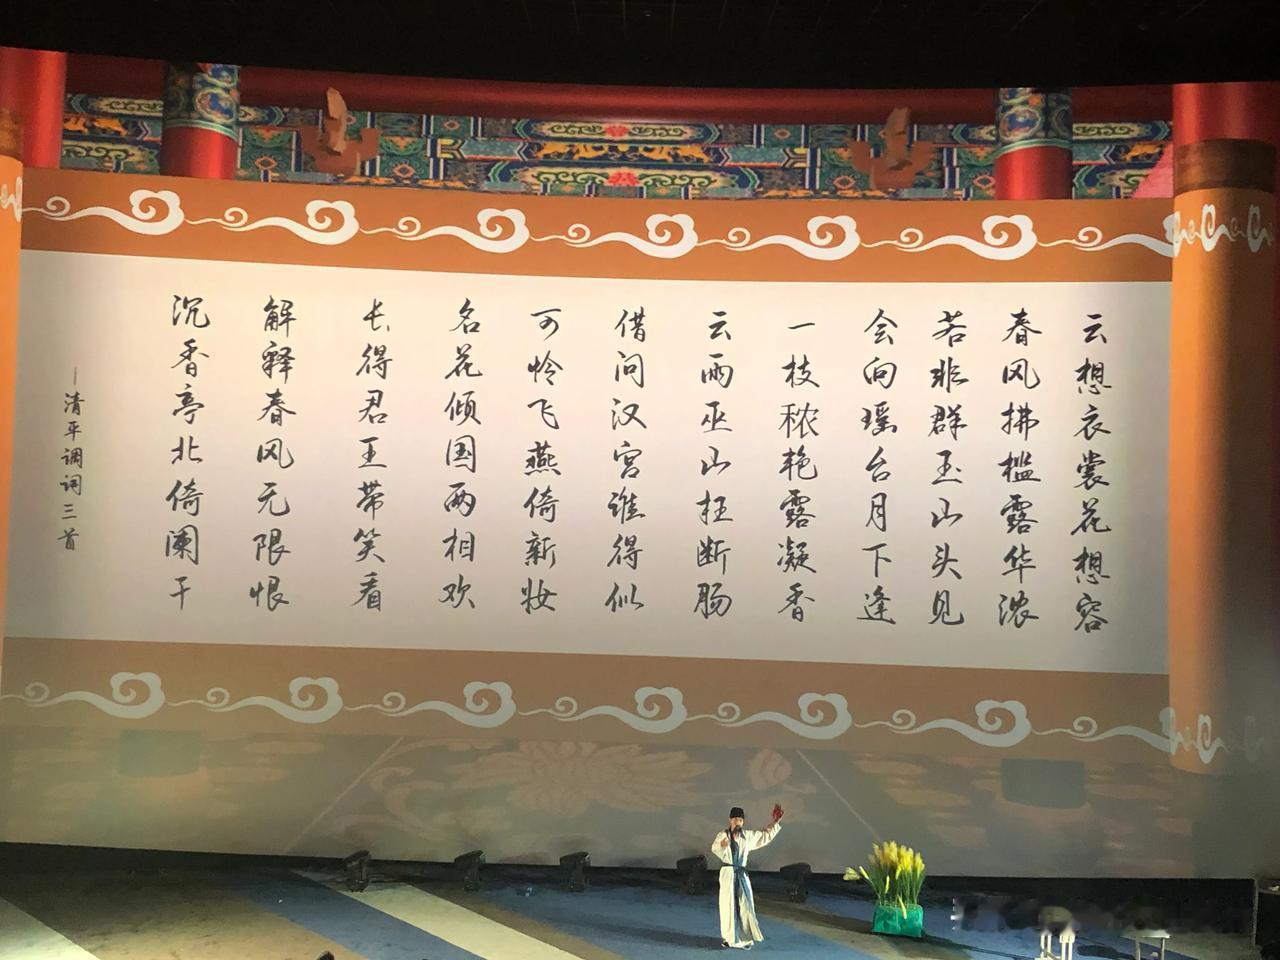 云想衣裳花想容
春风拂槛露华浓
若非群玉山头见
会向瑶台月下逢
一枝秾艳露凝香
云雨巫山枉断肠
借问汉宫谁得似
可怜飞燕倚新妆
名花倾国两相欢
长得君王带笑看
解释春风无限恨
沉香亭北倚阑干
—清平调词三首